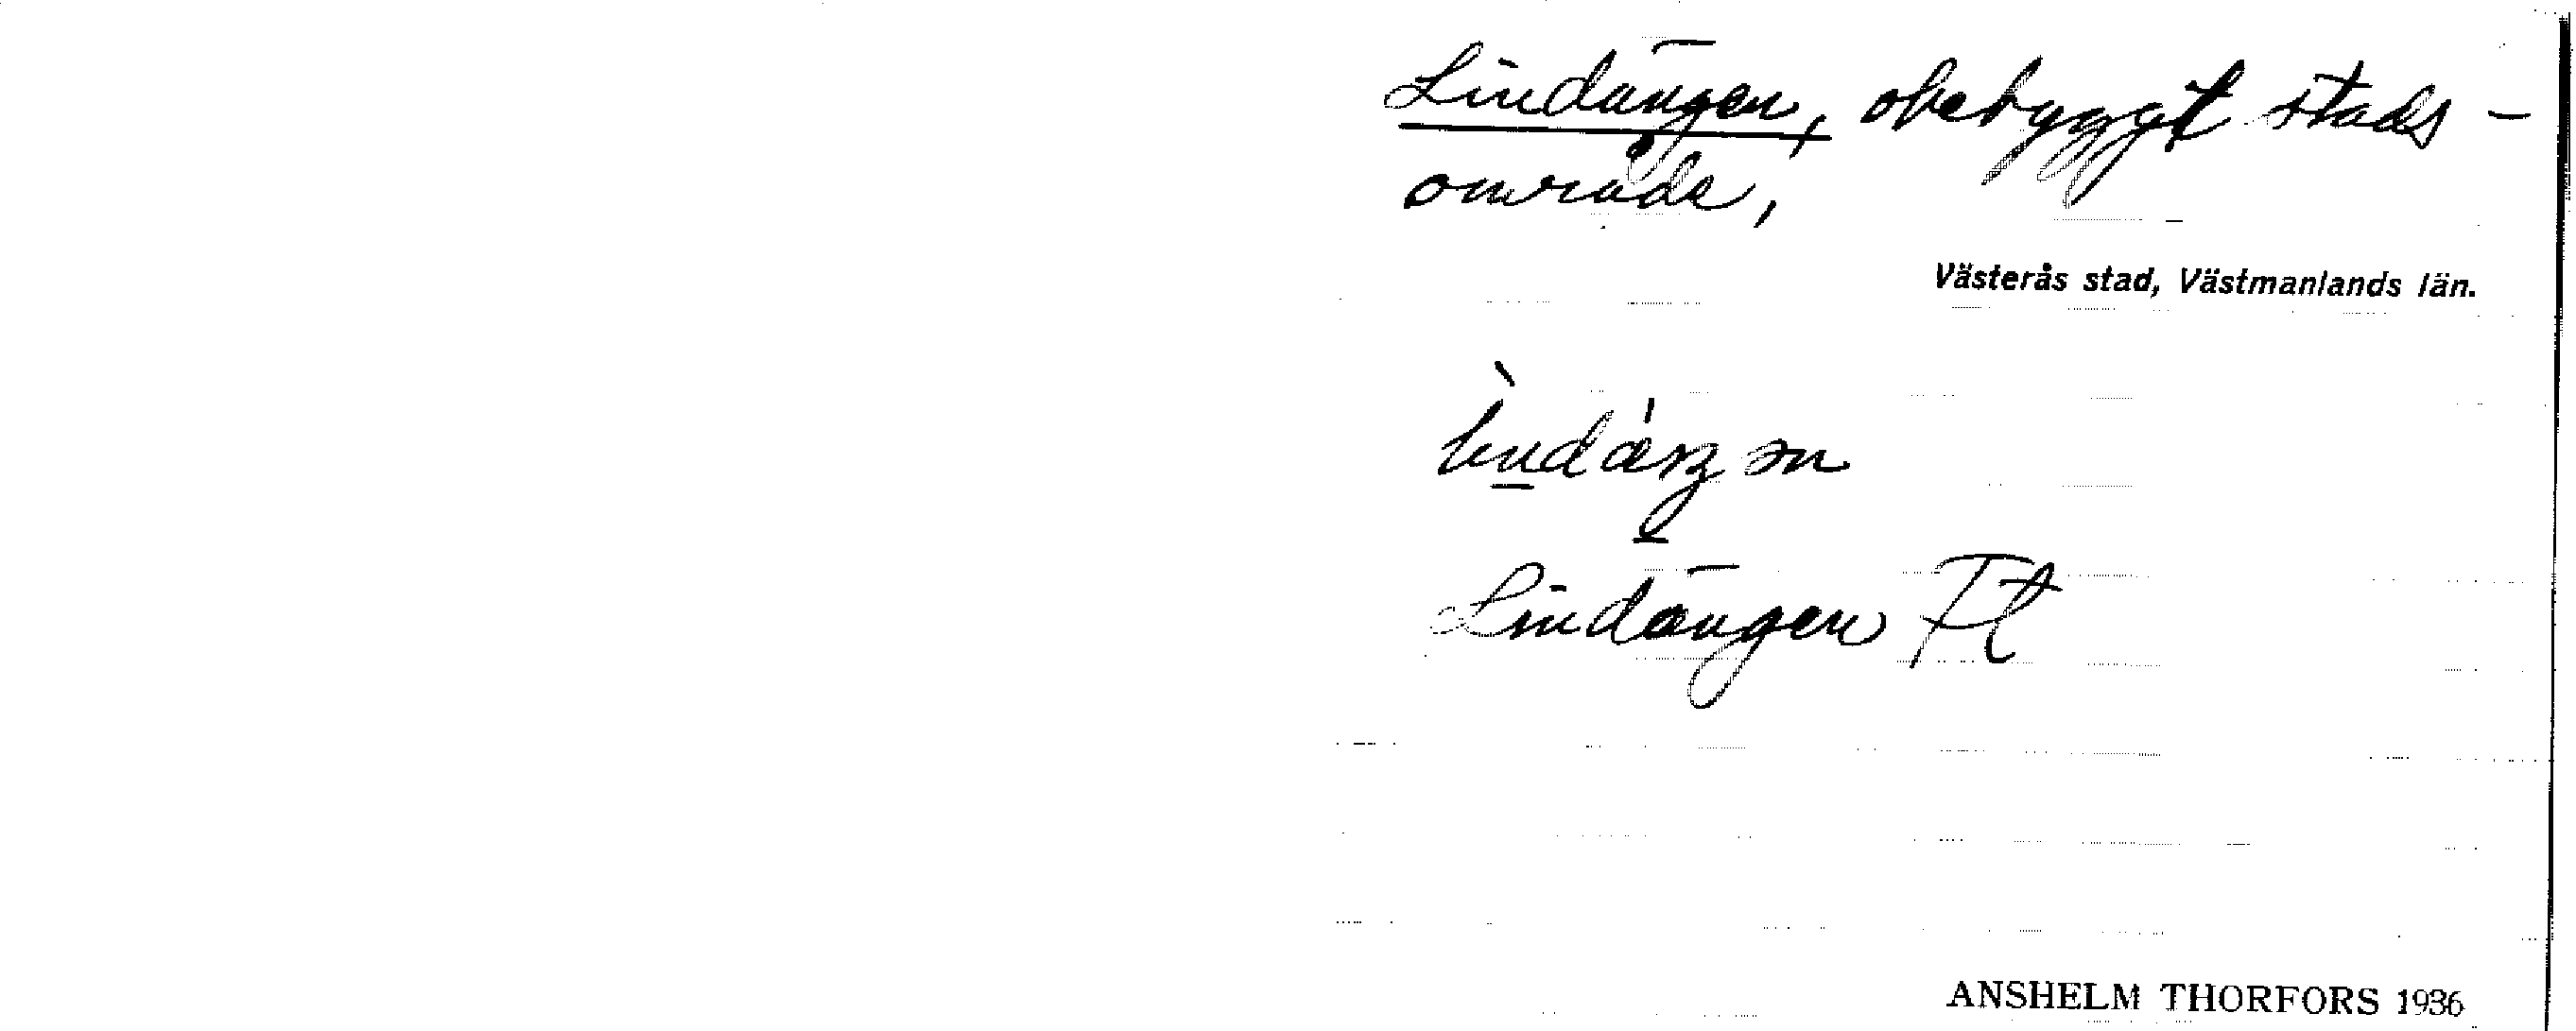 Lindängen, obebyggt stads-
område,
Västerås stad, Västmanlands län.
Lindängen Tt
ANSHELM THORFORS 1936